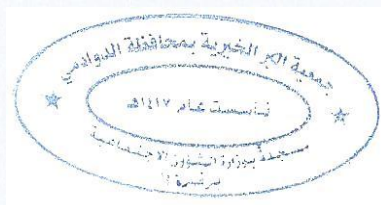 جمعية البر الخيرية بمحافظة الدوادمي
تأسست عام ١٤١٧هـ
مسجلة بوزارة الشؤون الاجتماعية